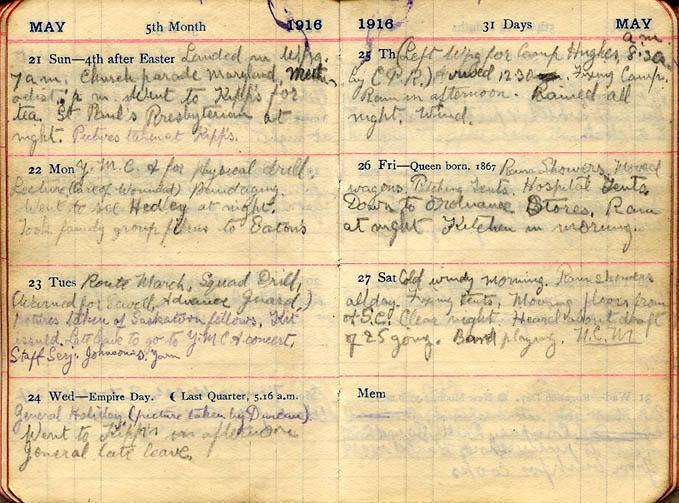 MAY 5th Month 1916
21 Sun—4th after Easter Landed in Wpg.
7 a.m. Church parade Maryland Meth-
odist, p.m. Went to Kipp's for
tea. St Paul's Presbyterian at
night. Pictures taken at Kipp's.
22 Mon Y.M.C.A for physical drill.
Lecture (Care of Wounded) Bandaging.
Went to see Hedley at night.
Took family group films to Eaton's
23 Tues Route March, Squad Drill,
for Advance Guard,)
Pictures taken of Saskatoon fellows. Kit
issued. Late pave to go to Y.M.C.A concert,
Staff Serj. Johnson's Yarn
24 Wed—Empire Day. ☾ Last Quarter, 5.16 a.m.
General Holiday (picture taken by Duncan).
Went to Kipp's in afternoon
General late leave.
1916 31 Days MAY
a.m.
25 Th (Left Wpg for Camp Hughes 8:30
by C.P.R.) Arrived 12.30. Fixing Camp.
Rain in afternoon. Rained all
night. Wind.
26 Fri—Queen born, 1867 Rain Showers, Moved
wagons, Pitching Tents. Hospital Tents.
Down to Ordnance Stores. Rain
at night Kitchen in morning.
27 Sat Cold windy morning. Rain showers
all day. Fixing tents, Moving floors from
A.S.C. Clear night. Heard about draft
of 25 going. Band playing. N.C.W
Mem